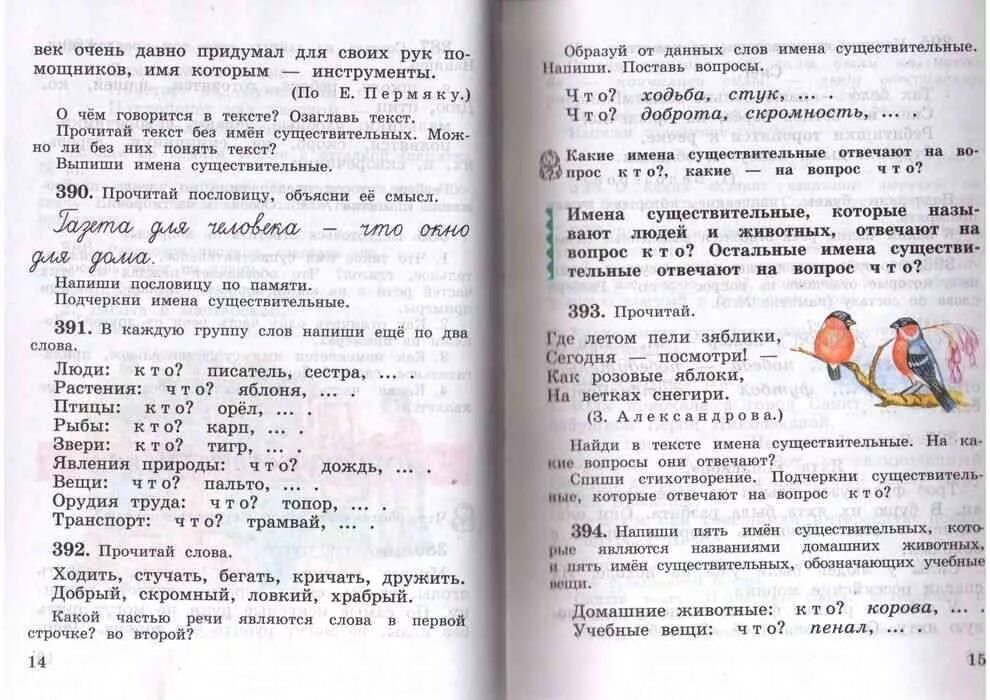 век очень давно придумал для своих рук по-
мощников, имя которым — инструменты.
(По Е. Пермяку.)
О чём говорится в тексте? Озаглавь текст.
Прочитай текст без имён существительных. Мож-
но ли без них понять текст?
Выпиши имена существительные.
390. Прочитай пословицу, объясни её смысл.
Газета для человека — что окно
для дома.
Напиши пословицу по памяти.
Подчеркни имена существительные.
391. В каждую группу слов напиши ещё по два
слова.
Люди: кто? писатель, сестра, ... .
Растения: что? яблоня, ... .
Птицы: кто? орёл, ... .
Рыбы: кто? карп, ... .
Звери: кто? тигр, ... .
Явления природы: что? дождь, ... .
Вещи: что? пальто, ... .
Орудия труда: что? топор, ... .
Транспорт: что? трамвай, ... .
392. Прочитай слова.
Ходить, стучать, бегать, кричать, дружить.
Добрый, скромный, ловкий, храбрый.
Какой частью речи являются слова в первой
строчке? во второй?
14
Образуй от данных слов имена существительные.
Напиши. Поставь вопросы.
Что? ходьба, стук, ... .
Что? доброта, скромность, ... .
Какие имена существительные отвечают на во-
прос кто?, какие — на вопрос что?
Имена существительные, которые назы-
вают людей и животных, отвечают на
вопрос кто? Остальные имена существи-
тельные отвечают на вопрос что?
393. Прочитай.
Где летом пели зяблики,
Сегодня — посмотри! —
Как розовые яблоки,
На ветках снегири.
(З. Александрова.)
Найди в тексте имена существительные. На ка-
кие вопросы они отвечают?
Спиши стихотворение. Подчеркни существитель-
ные, которые отвечают на вопрос кто?
394. Напиши пять имён существительных, кото-
рые являются названиями домашних животных,
и пять имён существительных, обозначающих учебные
вещи.
Домашние животные: кто? корова, ... .
Учебные вещи: что? пенал, ... .
15